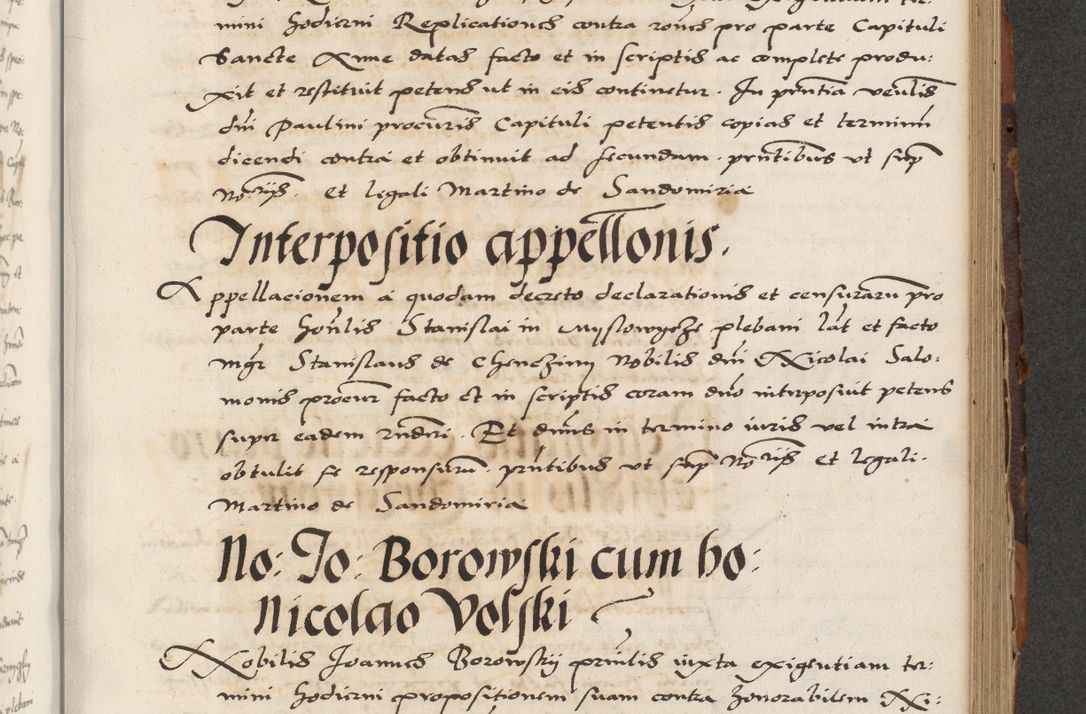 mini hodierni Replicationes contra rones pro parte Capituli
Sancte Anne datas facto et in scriptis ac complete produ:
xit et restituit petens ut in eis continetur. In pntia venlis
dni Paulini procuris Capituli petentis copias et terminu
dicendi contra et obtinuit ad secundum. pntibus ut sup
No rijs. et legali Martino de Sandomiria
Interpositio appellonis.
Appellacionem a quodam decreto declarationis et censuraru pro
parte honlis Stanislai in Myslowycze plebani lat et facto
mgr Stanislaus de Chenczini Nobilis dni Nicolai Salo:
monis procur facto et in scriptis coram dno interposuit petens
super eadem rndri. Et dnus in termino iuris vel intra
obtulit se responsuru. pntibus ut sup No rijs et legali.
Martino de Sandomiria
No: Io: Borowski cum ho:
Nicolao Volski
Nobilis Joannes Borowskij prinlis iuxta exigentiam ter:
mini hodierni propositionem suam contra honorabilem Ni: